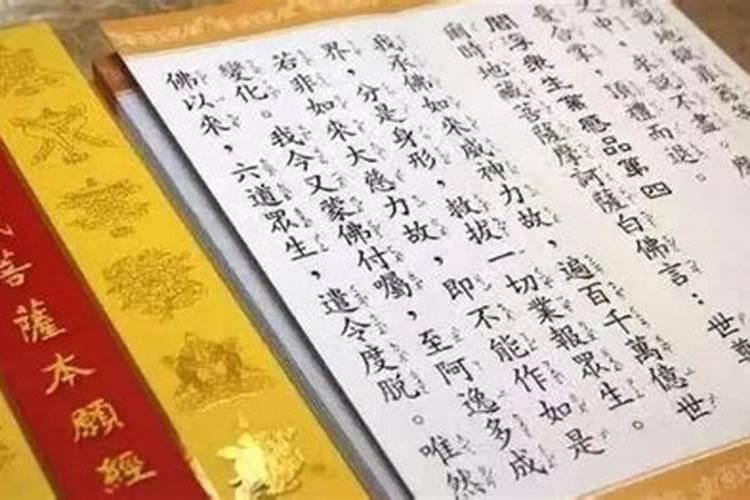 說地獄罪
中，求說不盡。
憂合掌，頂禮而退。
閻浮眾生業感品第四
爾時地藏菩薩摩訶薩白佛言：世尊
我承佛如來威神力故，遍百千萬億世
界，分是身形，救拔一切業報眾生。
若非如來大慈力故，即不能作如是
變化。我今又蒙佛付囑，至阿逸多成
佛以來，六道眾生，遣令度脫。唯然
菩薩本願經